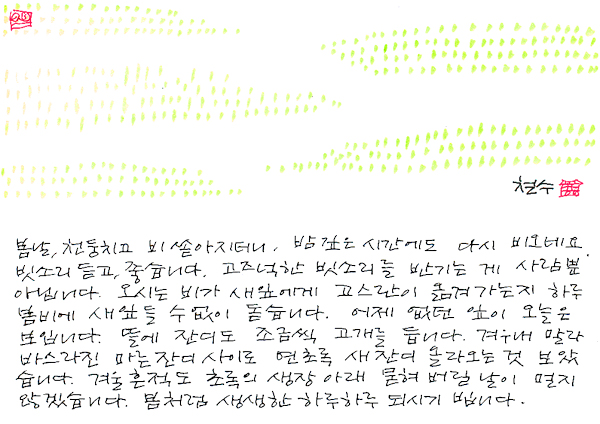 철수
봄날, 천둥치고 비 쏟아지더니, 밤 깊은 시간에도 다시 비오네요.
빗소리 듣고, 좋습니다. 고즈넉한 빗소리를 반기는 게 사람뿐
아닙니다. 오시는 비가 새잎에게 고스란히 옮겨가는지 하루
봄비에 새잎들 수없이 돋습니다. 어제 없던 잎이 오늘은
보입니다. 뜰에 잔디도 조금씩 고개를 듭니다. 겨우내 말라
바스라진 마른잔디 사이로 연초록 새잔디 올라오는것 보았
습니다. 겨울흔적도 초록의 생장 아래 묻혀 버릴 날이 멀지
않겠습니다. 봄처럼 생생한 하루하루 되시기 빕니다.